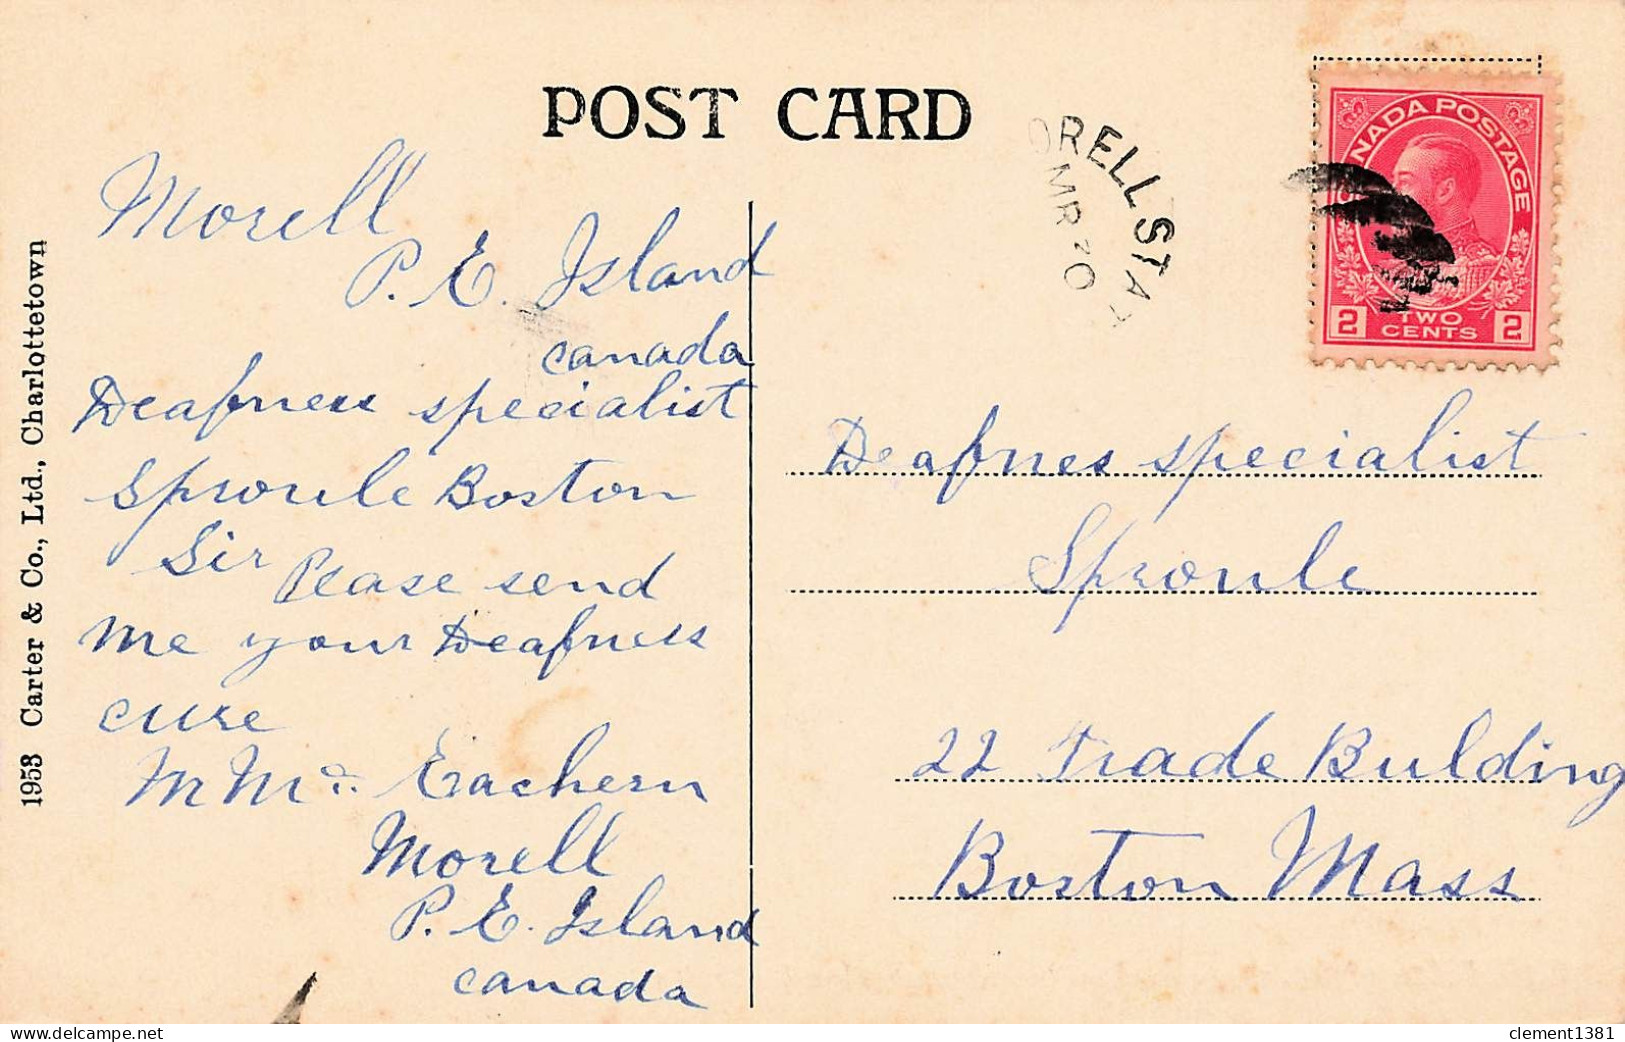 POST CARD
ORELL STAT
MR 20
CANADA POSTAGE
2 TWO CENTS 2
1953 Carter & Co., Ltd., Charlottetown
Morell
P. E. Island
canada
Deafness specialist
Sproule Boston
Sir Please send
me your Deafness
cure
Eachern
Morell
P. E. Island
canada
Deafnes specialist
Sproule
22 Trade Bulding
Boston Mass
clement1381